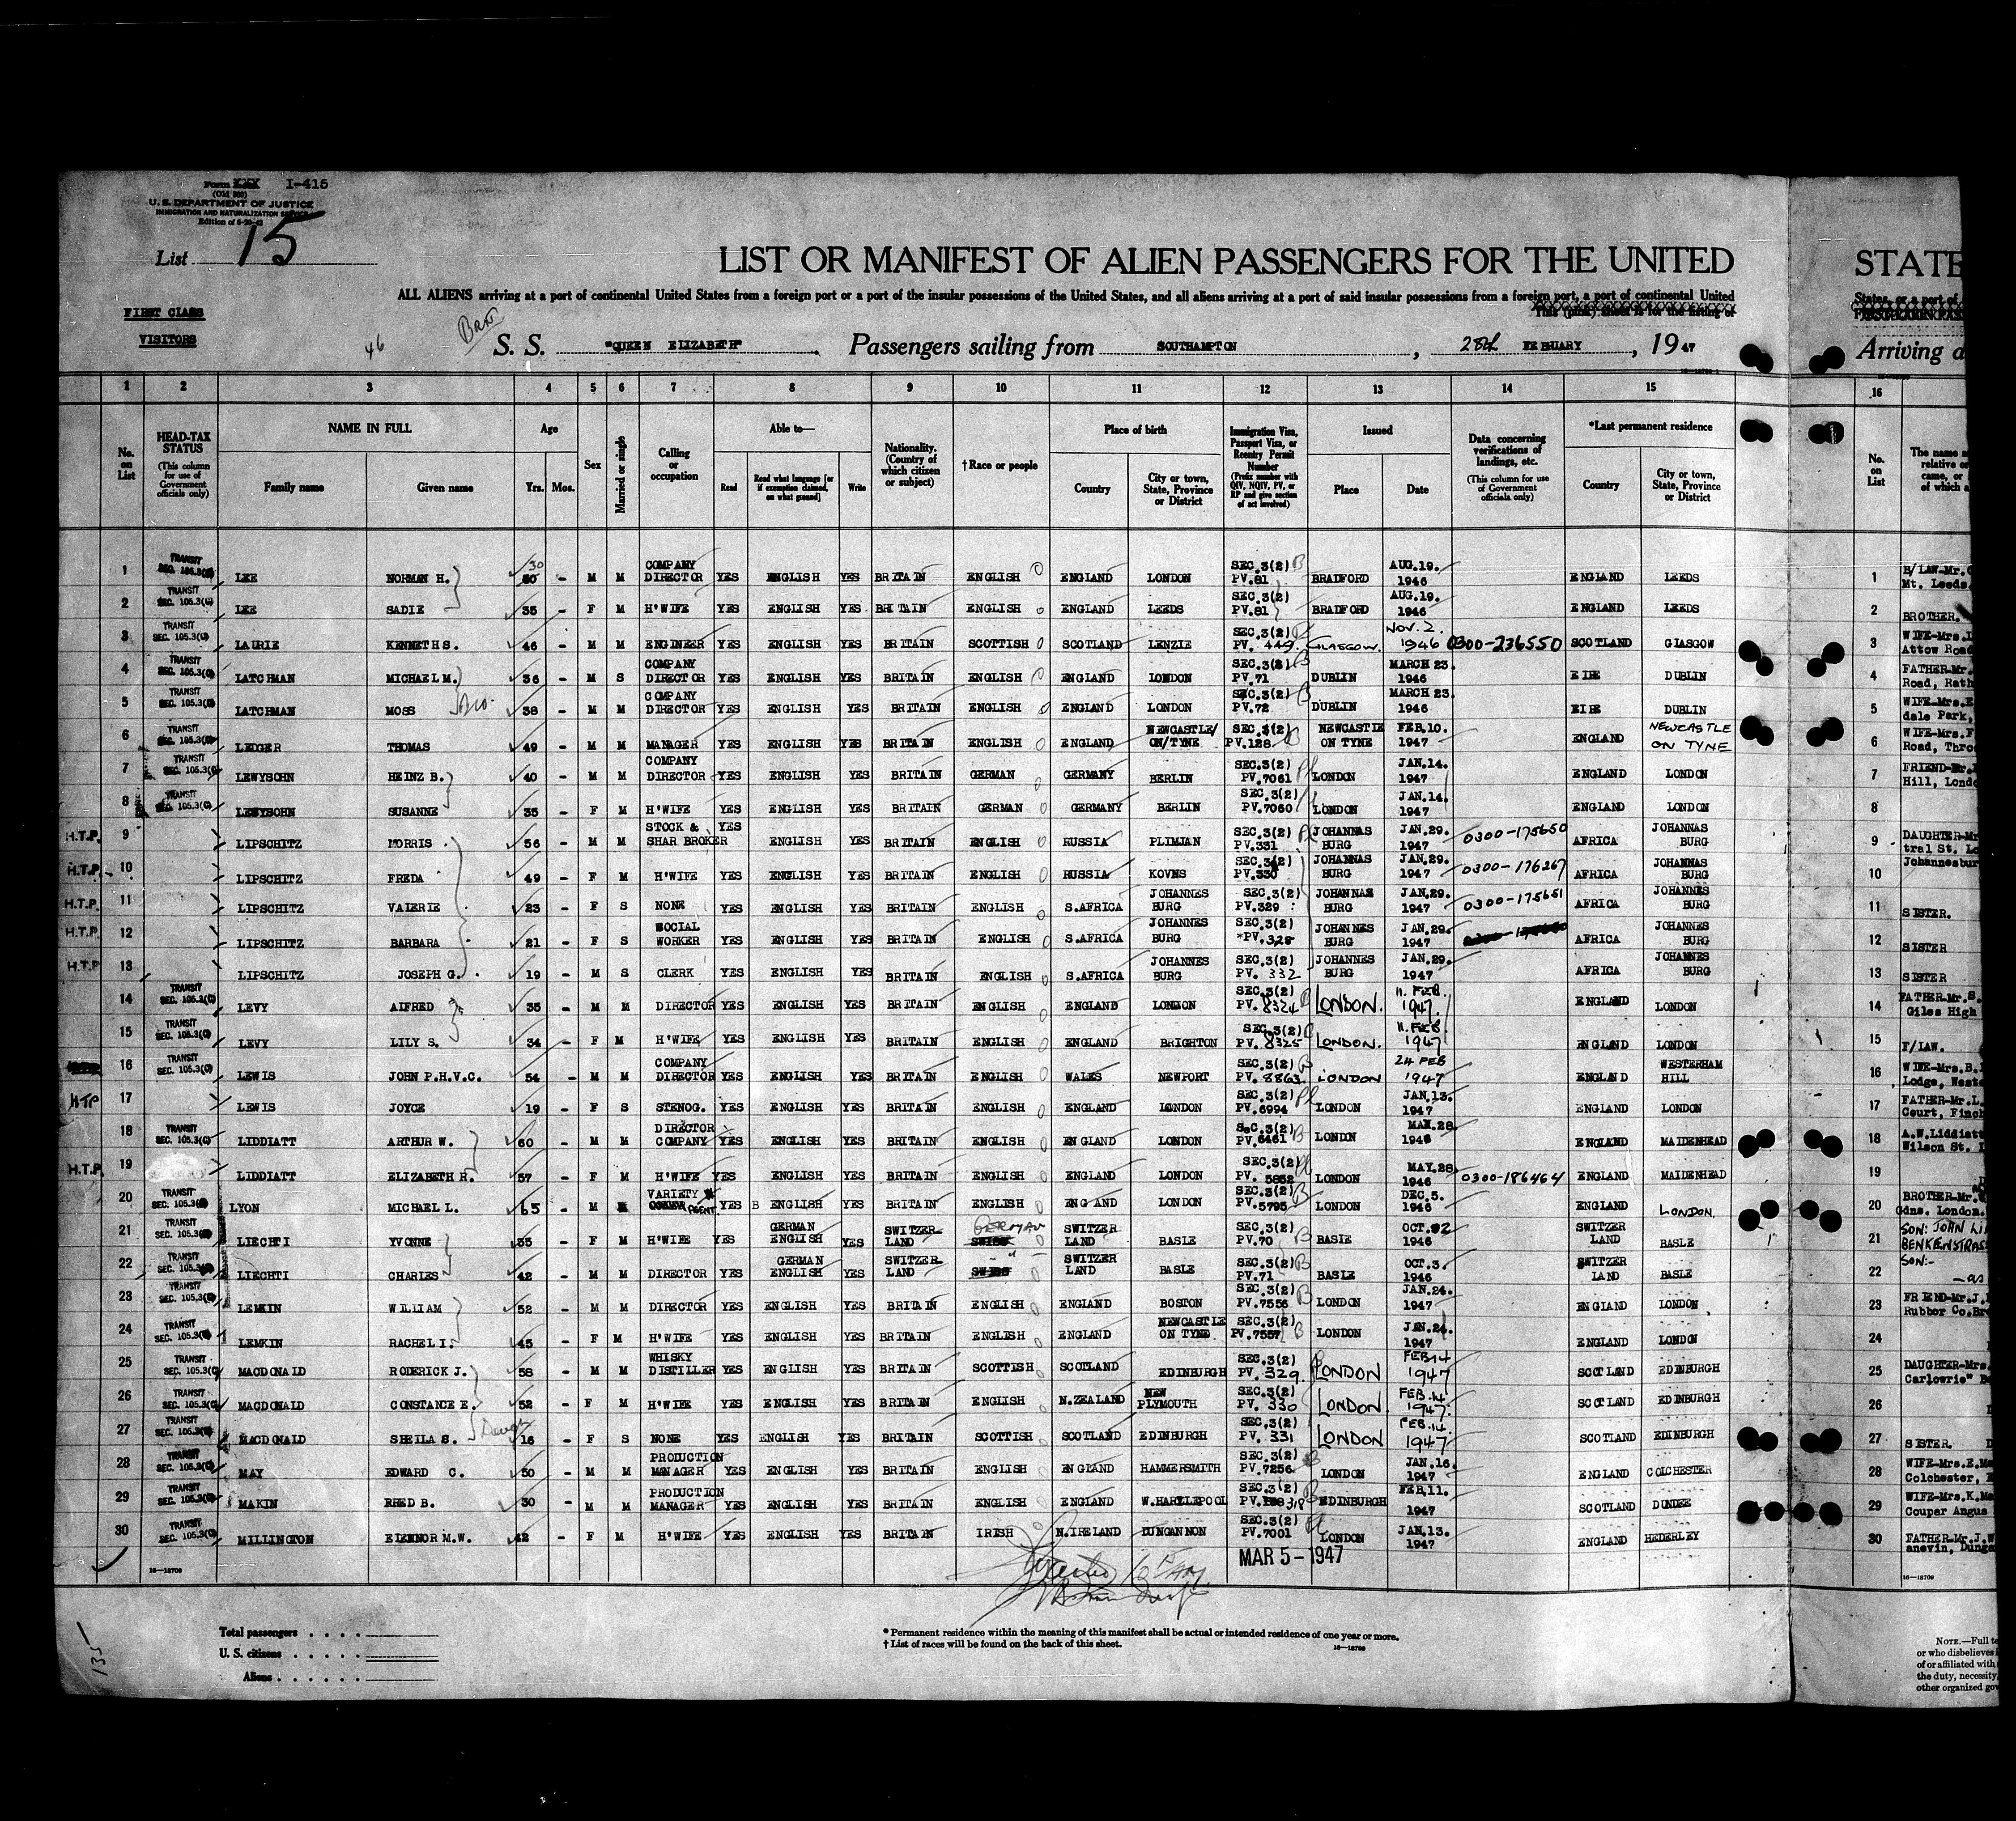 Form I-415
(Old 500)
U. S. DEPARTMENT OF JUSTICE
IMMIGRATION AND NATURALIZATION SERVICE
Edition of 6-20-42
List 15
LIST OR MANIFEST OF ALIEN PASSENGERS FOR THE UNITED STATE
ALL ALIENS arriving at a port of continental United States from a foreign port or a port of the insular possessions of the United States, and all aliens arriving at a port of said insular possessions from a foreign port, a port of continental United
States, or a port of
FIRST CLASS
VISITORS
46
S. S. "QUEEN ELIZABETH" Passengers sailing from SOUTHAMPTON, 28th FEBRUARY, 1947
Arriving a
1 2 3 4 5 6 7 8 9 10 11 12 13 14 15 16
No. on List
HEAD-TAX STATUS (This column for use of Government officials only)
NAME IN FULL
Family name Given name
Age Yrs. Mos.
Sex
Married or single
Calling or occupation
Able to—
Read Read what language [or if exemption claimed, on what ground] Write
Nationality. (Country of which citizen or subject)
†Race or people
Place of birth
Country City or town, State, Province or District
Immigration Visa, Passport Visa, or Reentry Permit Number (Prefix number with QIV, NQIV, PV, or RP and give section of act involved)
Issued
Place Date
Data concerning verifications of landings, etc. (This column for use of Government officials only)
*Last permanent residence
Country City or town, State, Province or District
No. on List
1 TRANSIT LEE NORMAN H. 30 - M M COMPANY DIRECTOR YES ENGLISH YES BRITAIN ENGLISH ENGLAND LONDON SEC.3(2) PV.81 BRADFORD AUG.19. 1946 ENGLAND LEEDS 1
2 TRANSIT SEC. 105.3(C) LEE SADIE 35 - F M H'WIFE YES ENGLISH YES BRITAIN ENGLISH ENGLAND LEEDS SEC.3(2) PV.81 BRADFORD AUG.19. 1946 ENGLAND LEEDS 2 BROTHER.
3 TRANSIT SEC. 105.3(C) LAURIE KENNETH S. 46 - M M ENGINEER YES ENGLISH YES BRITAIN SCOTTISH SCOTLAND LENZIE SEC.3(2) PV. 449. GLASGOW. NOV. 2. 1946 0300-236550 SCOTLAND GLASGOW 3 Attow Road
4 TRANSIT SEC. 105.3(C) LATCHMAN MICHAEL M. 36 - M S COMPANY DIRECTOR YES ENGLISH YES BRITAIN ENGLISH ENGLAND LONDON SEC.3(2) PV.71 DUBLIN MARCH 23. 1946 EIRE DUBLIN 4 FATHER-Mr. Road, Rath
5 TRANSIT SEC. 105.3(C) LATCHMAN MOSS Bro. 38 - M M COMPANY DIRECTOR YES ENGLISH YES BRITAIN ENGLISH ENGLAND LONDON SEC.3(2) PV.72 DUBLIN MARCH 23. 1946 EIRE DUBLIN 5 WIFE-Mrs.E dale Park,
6 TRANSIT SEC. 105.3(C) LEDGER THOMAS 49 - M M MANAGER YES ENGLISH YES BRITAIN ENGLISH ENGLAND NEWCASTLE/ ON/TYNE SEC.3(2) PV.128. NEWCASTLE ON TYNE FEB.10. 1947 ENGLAND NEWCASTLE ON TYNE 6 WIFE-Mrs.F Road, Thro
7 TRANSIT SEC. 105.3(C) LEWYSOHN HEINZ B. 40 - M M COMPANY DIRECTOR YES ENGLISH YES BRITAIN GERMAN GERMANY BERLIN SEC.3(2) PV.7061 LONDON JAN.14. 1947 ENGLAND LONDON 7 FRIEND-Mr. Hill, Londo
8 TRANSIT SEC. 105.3(C) LEWYSOHN SUSANNE 35 - F M H'WIFE YES ENGLISH YES BRITAIN GERMAN GERMANY BERLIN SEC.3(2) PV.7060 LONDON JAN.14. 1947 ENGLAND LONDON 8
H.T.P. 9 LIPSCHITZ MORRIS 56 - M M STOCK & SHAR BROKER YES ENGLISH YES BRITAIN ENGLISH RUSSIA PLIMJAN SEC.3(2) PV.331 JOHANNAS BURG JAN.29. 1947 0300-175650 AFRICA JOHANNAS BURG 9 DAUGHTER-Mr tral St. Lo Johannesbur
H.T.P. 10 LIPSCHITZ FREDA 49 - F M H'WIFE YES ENGLISH YES BRITAIN ENGLISH RUSSIA KOVNS SEC.3(2) PV.330 JOHANNAS BURG JAN.29. 1947 0300-176267 AFRICA JOHANNAS BURG 10
H.T.P. 11 LIPSCHITZ VALERIE 23 - F S NONE YES ENGLISH YES BRITAIN ENGLISH S.AFRICA JOHANNES BURG SEC.3(2) PV.329 JOHANNAS BURG JAN.29. 1947 0300-175651 AFRICA JOHANNES BURG 11 SISTER.
H.T.P. 12 LIPSCHITZ BARBARA 21 - F S SOCIAL WORKER YES ENGLISH YES BRITAIN ENGLISH S.AFRICA JOHANNES BURG SEC.3(2) PV.328 JOHANNES BURG JAN.29. 1947 AFRICA JOHANNES BURG 12 SISTER
H.T.P 13 LIPSCHITZ JOSEPH G. 19 - M S CLERK YES ENGLISH YES BRITAIN ENGLISH S.AFRICA JOHANNES BURG SEC.3(2) PV. 332 JOHANNES BURG JAN.29. 1947 AFRICA JOHANNES BURG 13 SISTER
14 TRANSIT SEC. 105.3(C) LEVY ALFRED 35 - M M DIRECTOR YES ENGLISH YES BRITAIN ENGLISH ENGLAND LONDON SEC.3(2) PV. 8324 LONDON. 11. FEB. 1947. ENGLAND LONDON 14 FATHER-Mr.S. Giles High
15 TRANSIT SEC. 105.3(C) LEVY LILY S. 34 - F M H'WIFE YES ENGLISH YES BRITAIN ENGLISH ENGLAND BRIGHTON SEC.3(2) PV. 8325 LONDON. 11. FEB. 1947 ENGLAND LONDON 15 F/LAW.
16 TRANSIT SEC. 105.3(C) LEWIS JOHN P.H.V.C. 54 - M M COMPANY DIRECTOR YES ENGLISH YES BRITAIN ENGLISH WALES NEWPORT SEC.3(2) PV. 8863 LONDON 24 FEB 1947 ENGLAND WESTERHAM HILL 16 WIFE-Mrs.B. Lodge, Weste
HTP 17 LEWIS JOYCE 19 - F S STENOG. YES ENGLISH YES BRITAIN ENGLISH ENGLAND LONDON SEC.3(2) PV.6994 LONDON JAN.13. 1947 ENGLAND LONDON 17 FATHER-Mr.L. Court, Finch
18 TRANSIT SEC. 105.3(C) LIDDIATT ARTHUR W. 60 - M M DIRECTOR COMPANY YES ENGLISH YES BRITAIN ENGLISH ENGLAND LONDON SEC.3(2) PV.6461 LONDON MAY.28. 1946 ENGLAND MAIDENHEAD 18 A.W.Liddiatt Wilson St.
H.T.P. 19 LIDDIATT ELIZABETH R. 57 - F M H'WIFE YES ENGLISH YES BRITAIN ENGLISH ENGLAND LONDON SEC.3(2) PV. 5852 LONDON MAY.28. 1946 0300-186464 ENGLAND MAIDENHEAD 19
20 TRANSIT SEC. 105.3(C) LYON MICHAEL L. 65 - M VARIETY AGENT YES ENGLISH YES BRITAIN ENGLISH ENGLAND LONDON SEC.3(2) PV.5795 LONDON DEC.5. 1946 ENGLAND LONDON. 20 BROTHER-Mr. Gdns. London.
21 TRANSIT SEC. 105.3(C) LIECHTI YVONNE 35 - F M H'WIFE YES GERMAN ENGLISH YES SWITZER LAND GERMAN SWITZER LAND BASLE SEC.3(2) PV.70 BASLE OCT.2 1946 SWITZER LAND BASLE 21 SON: JOHN LI BENKENSTRASS
22 TRANSIT SEC. 105.3(C) LIECHTI CHARLES 42 - M M DIRECTOR YES GERMAN ENGLISH YES SWITZER LAND - " - SWITZER LAND BASLE SEC.3(2) PV.71 BASLE OCT.3. 1946 SWITZER LAND BASLE 22 SON:- —as
23 TRANSIT SEC. 105.3(C) LEMKIN WILLIAM 52 - M M DIRECTOR YES ENGLISH YES BRITAIN ENGLISH ENGLAND BOSTON SEC.3(2) PV.7556 LONDON JAN.24. 1947 ENGLAND LONDON 23 FRIEND-Mr.J. Rubber Co.Br
24 TRANSIT SEC. 105.3(C) LEMKIN RACHEL I. 45 - F M H'WIFE YES ENGLISH YES BRITAIN ENGLISH ENGLAND NEWCASTLE ON TYNE SEC.3(2) PV.7557 LONDON JAN.24. 1947 ENGLAND LONDON 24
25 TRANSIT SEC. 105.3(C) MACDONALD RODERICK J. 58 - M M WHISKY DISTILLER YES ENGLISH YES BRITAIN SCOTTISH SCOTLAND EDINBURGH SEC.3(2) PV. 329. LONDON FEB 14 1947 SCOTLAND EDINBURGH 25 DAUGHTER-Mrs. Carlowrie"
26 TRANSIT SEC. 105.3(C) MACDONALD CONSTANCE E. 52 - F M H'WIFE YES ENGLISH YES BRITAIN ENGLISH N.ZEALAND NEW PLYMOUTH SEC.3(2) PV. 330 LONDON FEB.14 1947. SCOTLAND EDINBURGH 26
27 TRANSIT SEC. 105.3(C) MACDONALD SHEILA S. 16 - F S NONE YES ENGLISH YES BRITAIN SCOTTISH SCOTLAND EDINBURGH SEC.3(2) PV. 331 LONDON FEB.14. 1947 SCOTLAND EDINBURGH 27 SISTER.
28 TRANSIT SEC. 105.3(C) MAY EDWARD C. 50 - M M PRODUCTION MANAGER YES ENGLISH YES BRITAIN ENGLISH ENGLAND HAMMERSMITH SEC.3(2) PV.7256 LONDON JAN.16. 1947 ENGLAND COLCHESTER 28 WIFE-Mrs.E.Ma Colchester, E
29 TRANSIT SEC. 105.3(C) MAKIN RHED B. 30 - M M PRODUCTION MANAGER YES ENGLISH YES BRITAIN ENGLISH ENGLAND W.HARTLEPOOL SEC.3(2) PV. 318 EDINBURGH FEB.11. 1947 SCOTLAND DUNDEE 29 WIFE-Mrs.K.Ma Coupar Angus
30 TRANSIT SEC. 105.3(C) MILLINGTON ELENNOR M.W. 42 - F M H'WIFE YES ENGLISH YES BRITAIN IRISH N.IRELAND DUNGANNON SEC.3(2) PV.7001 LONDON JAN.13. 1947 ENGLAND HEDERLEY 30 FATHER-Mr.J.W anevin, Dunga
MAR 5 - 1947
16—18709
16—18709
135
Total passengers
U. S. citizens
Aliens
* Permanent residence within the meaning of this manifest shall be actual or intended residence of one year or more.
† List of races will be found on the back of this sheet.
16—18709
NOTE.—Full te
or who disbelieves
of or affiliated with
the duty, necessity,
other organized gov